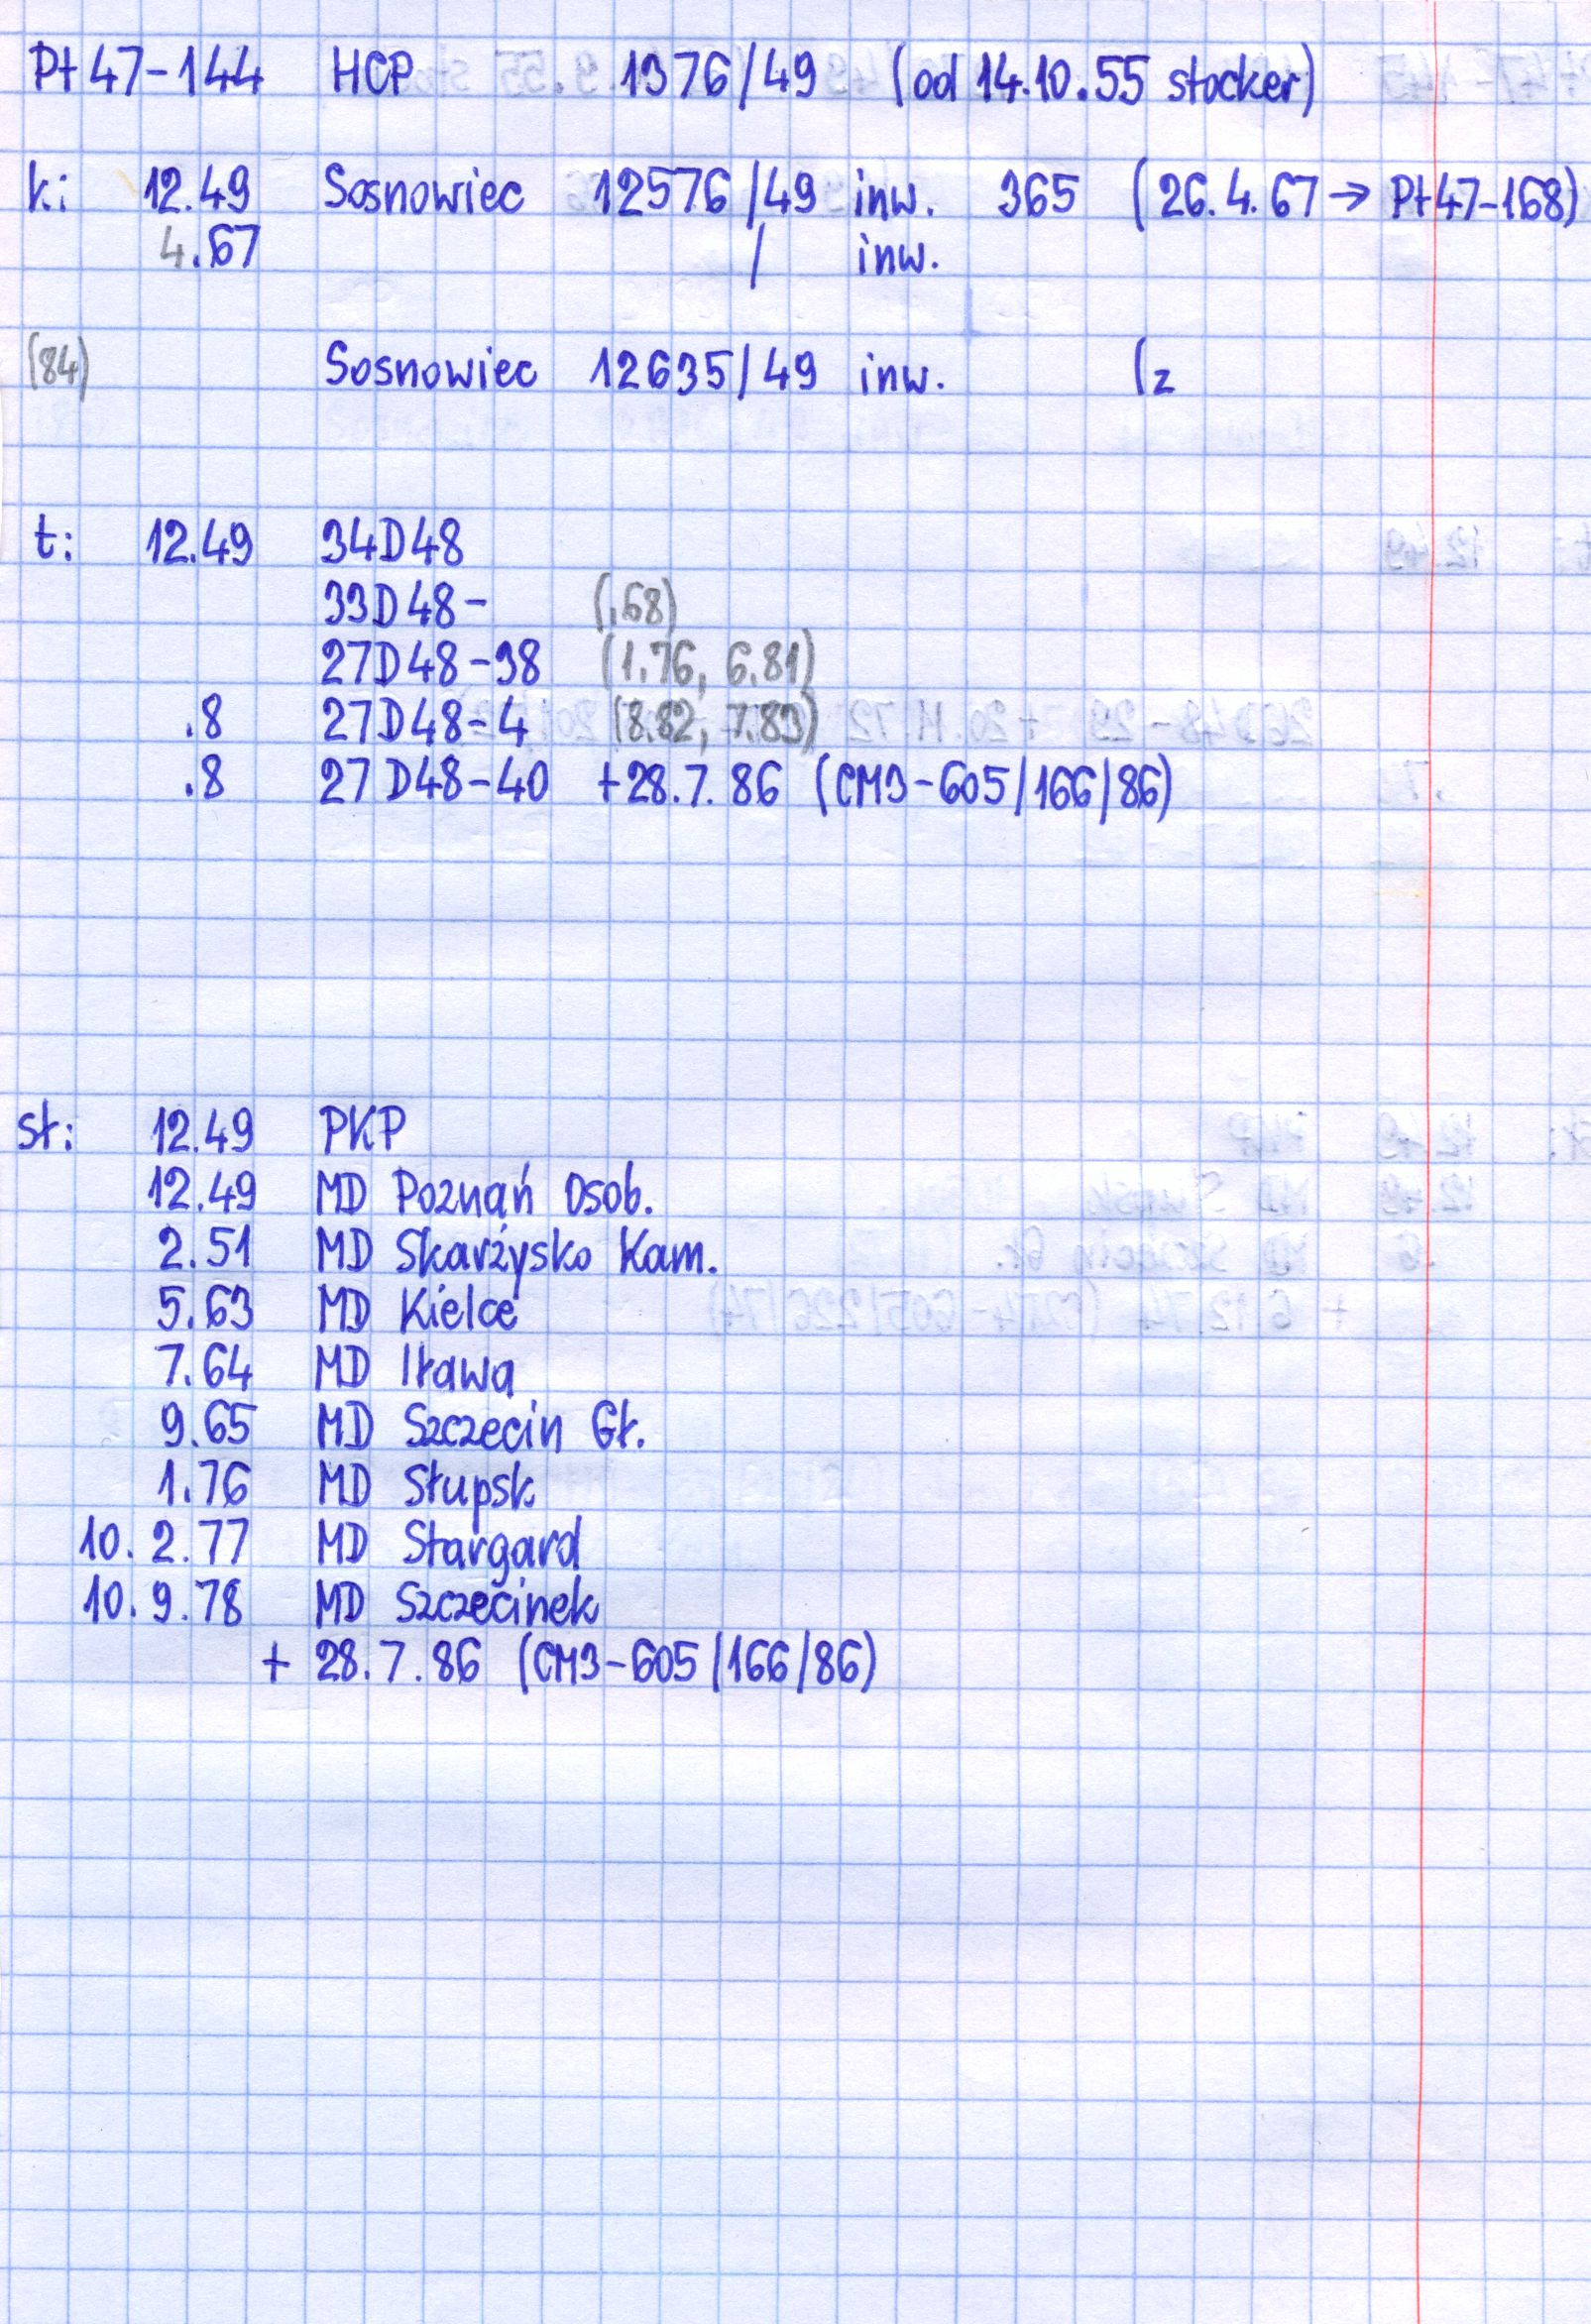 Pt47-144 HCP 1376/49 (od 14.10.55 stocker)
k: 12.49 Sosnowiec 12576/49 inw. 365 (26.4.67 → Pt47-168)
4.67 / inw.
(84) Sosnowiec 12635/49 inw. (z
t: 12.49 34D48
33D48- (.68)
27D48-38 (1.76, 6.81)
.8 27D48-4 (8.82, 7.83)
.8 27D48-40 +28.7.86 (CM3-605/166/86)
st: 12.49 PKP
12.49 MD Poznań Osob.
2.51 MD Skarżysko Kam.
5.63 MD Kielce
7.64 MD Iława
9.65 MD Szczecin Gł.
1.76 MD Słupsk
10.2.77 MD Stargard
10.9.78 MD Szczecinek
+ 28.7.86 (CM3-605/166/86)